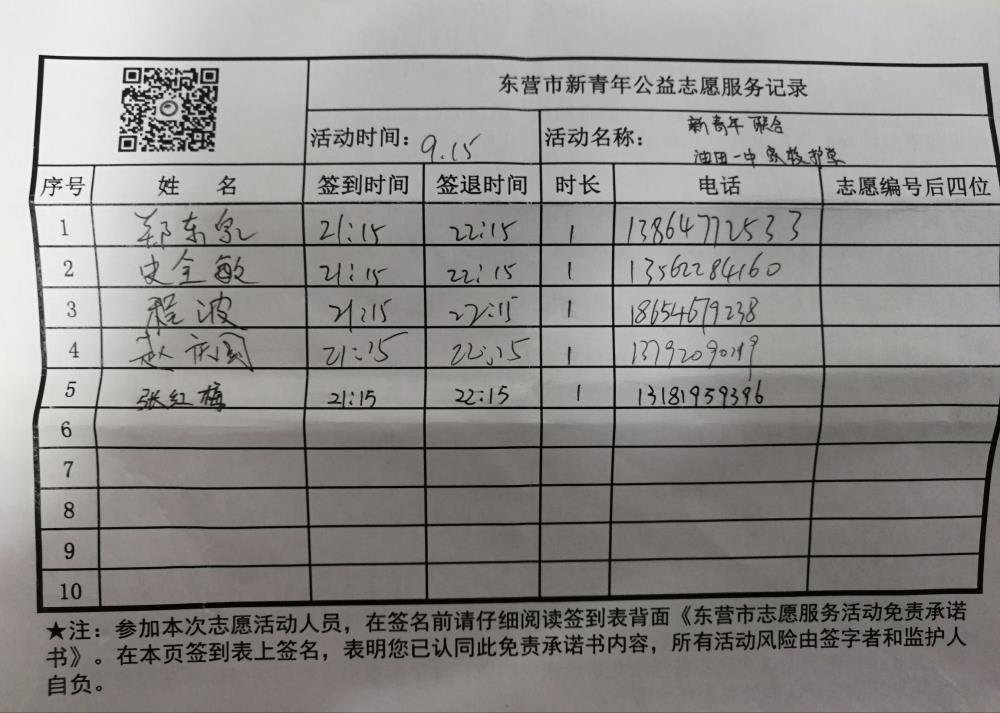 东营市新青年公益志愿服务记录
活动时间：9.15 活动名称：新青年联合
油田一中家校护学
序号 姓 名 签到时间 签退时间 时长 电话 志愿编号后四位
1 郑东泉 21:15 22:15 1 13864772533
2 史全敏 21:15 22:15 1 13562284160
3 程波 21:15 22:15 1 18654679238
4 赵 21:15 22:15 1
5 张红梅 21:15 22:15 1 13181959396
6
7
8
9
10
★注：参加本次志愿活动人员，在签名前请仔细阅读签到表背面《东营市志愿服务活动免责承诺
书》。在本页签到表上签名，表明您已认同此免责承诺书内容，所有活动风险由签字者和监护人
自负。